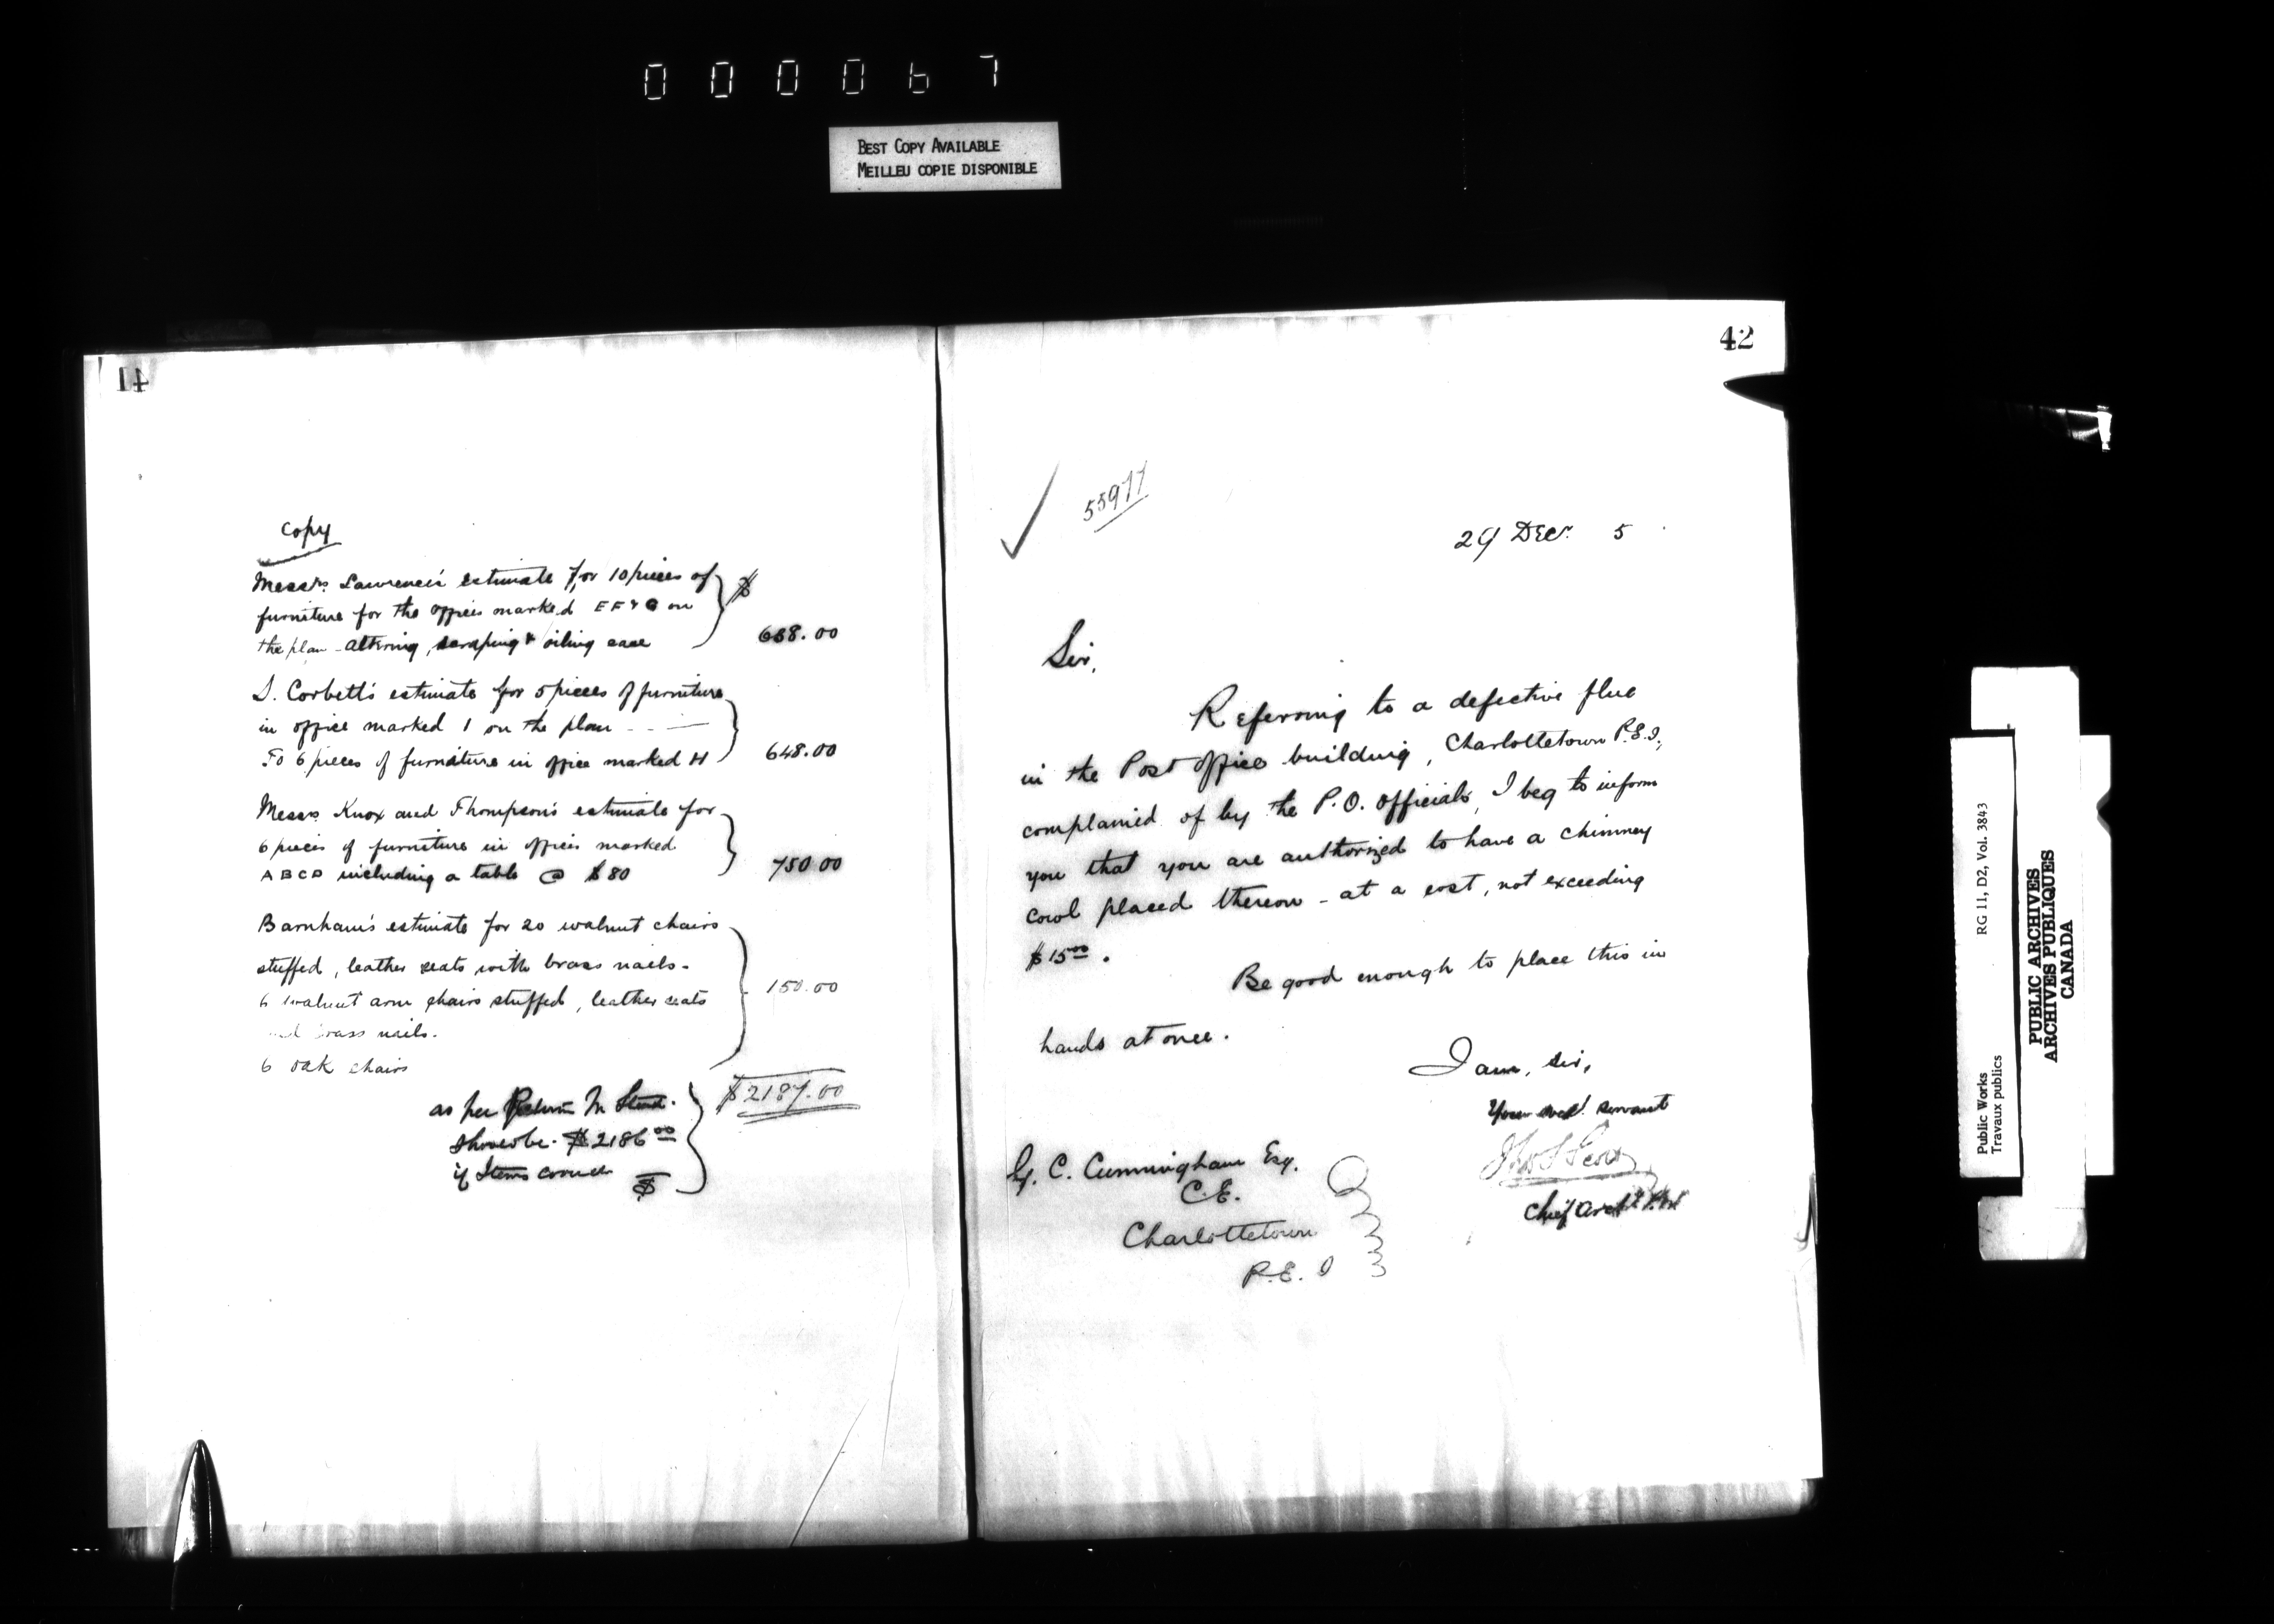 000067
BEST COPY AVAILABLE
MEILLEU COPIE DISPONIBLE
41
copy
Messrs. Lawrence's estimate for 10 pieces of
furniture for the offices marked E F & G on
the plan - altering, scraping & oiling case
$
638.00
S. Corbett's estimate for 5 pieces of furniture
in office marked 1 on the plan
To 6 pieces of furniture in office marked H
648.00
Messrs Knox and Thompson's estimate for
6 pieces of furniture in offices marked
A B C D including a table @ $80
750.00
Barnham's estimate for 20 walnut chairs
stuffed, leather seats with brass nails.
6 walnut arm chairs stuffed, leather seats
and brass nails.
6 oak chairs
150.00
$2187.00
as per
should be. $2186.00
if Items correct
$
42
55977
29 Decr. 5
Sir,
Referring to a defective flue
in the Post Office building, Charlottetown P.E.I.,
complained of by the P.O. Officials, I beg to inform
you that you are authorized to have a chimney
cowl placed thereon - at a cost, not exceeding
$15.00.
Be good enough to place this in
hands at once.
I am, sir,
Your obed. servant
Thos S Scott
Chief Archt. P.W
G. C. Cunningham Esq.
C.E.
Charlottetown
P.E.I
Public Works
Travaux publics
RG 11, D2, Vol. 3843
PUBLIC ARCHIVES
ARCHIVES PUBLIQUES
CANADA